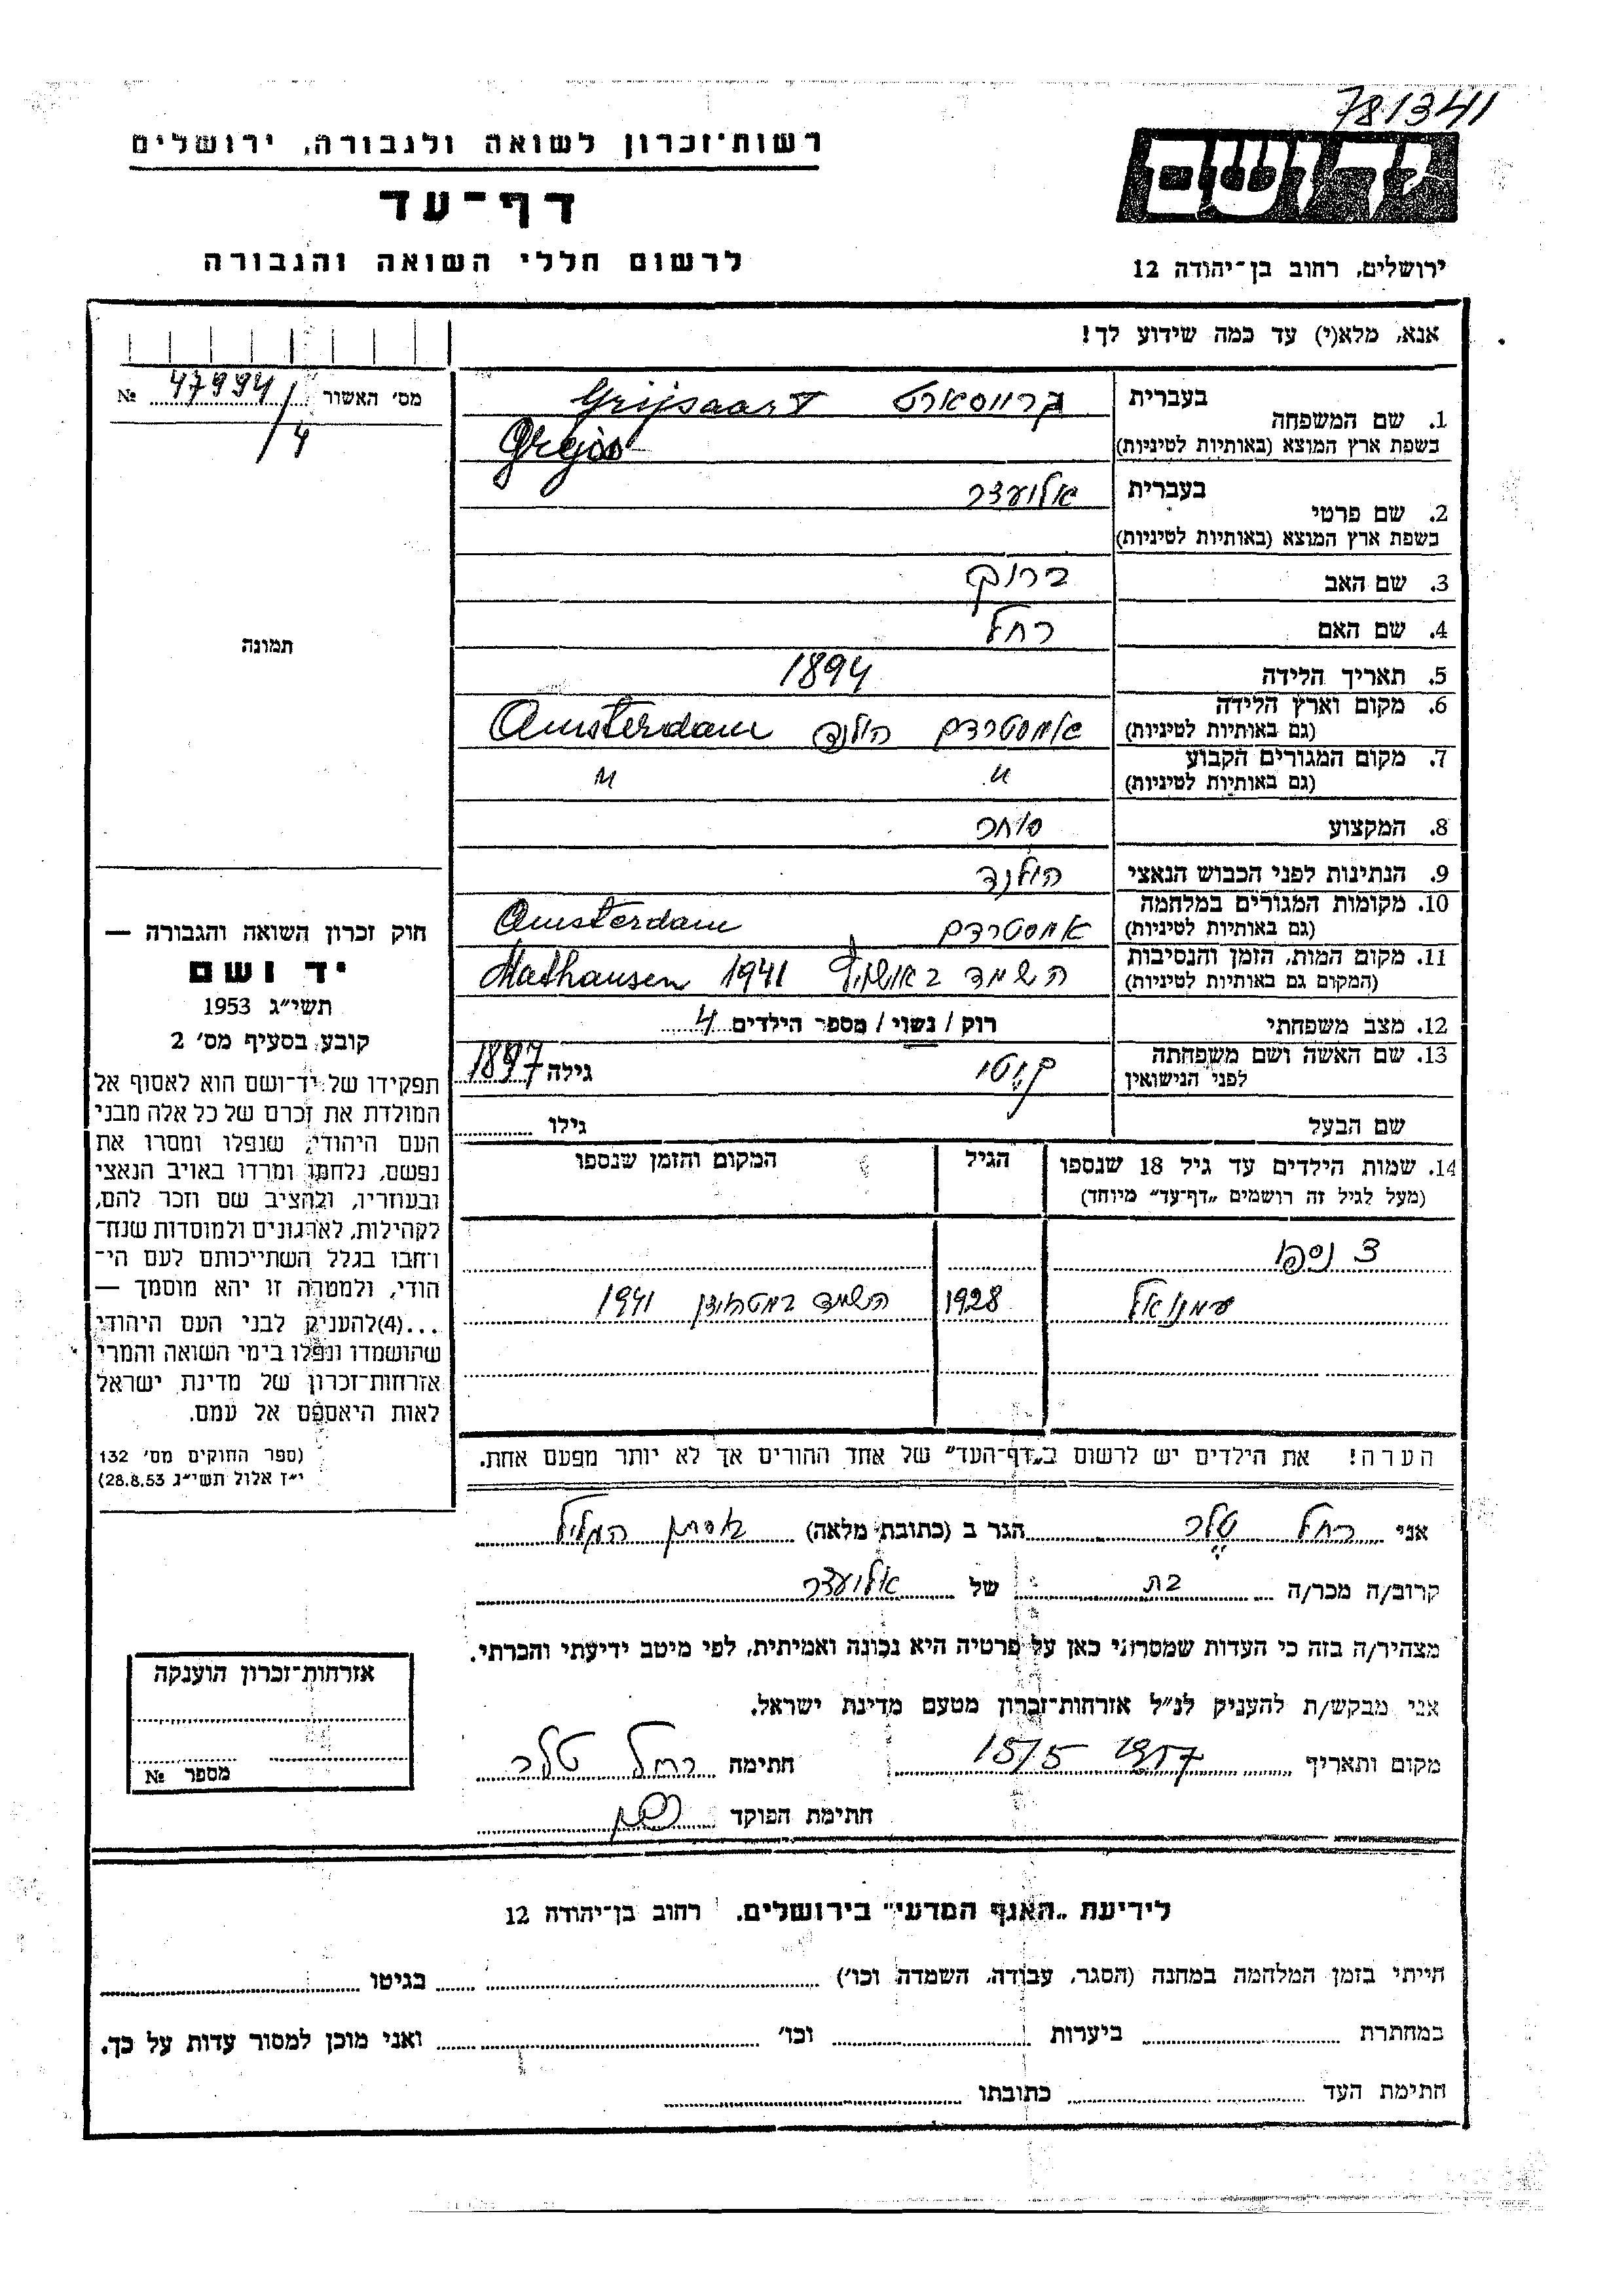 781341
רשות־זכרון לשואה ולגבורה, ירושלים
דף־עד
לרשום חללי השואה והגבורה
יד ושם
ירושלים, רחוב בן־יהודה 12
אנא, מלא(י) עד כמה שידוע לך!
מס׳ האשור 47994/4 №
1. שם המשפחה
בעברית
Grijsaar
בשפת ארץ המוצא (באותיות לטיניות)
2. שם פרטי
בעברית אלועזר
בשפת ארץ המוצא (באותיות לטיניות)
3. שם האב ברוך
4. שם האם רחל
5. תאריך הלידה 1894
6. מקום וארץ הלידה אמסטרדם הולנד Amsterdam
(גם באותיות לטיניות)
7. מקום המגורים הקבוע " "
(גם באותיות לטיניות)
8. המקצוע סוחר
9. הנתינות לפני הכבוש הנאצי הולנד
10. מקומות המגורים במלחמה אמסטרדם Amsterdam
(גם באותיות לטיניות)
11. מקום המות, הזמן והנסיבות השמד Mathausen 1941
(המקום גם באותיות לטיניות)
12. מצב משפחתי רוק / נשוי / מספר הילדים 4
13. שם האשה ושם משפחתה
לפני הנישואין גילה 1897
שם הבעל גילו
14. שמות הילדים עד גיל 18 שנספו הגיל המקום והזמן שנספו
(מעל לגיל זה רושמים „דף־עד" מיוחד)
3 נספו
עמנואל 1928 השמד במטהוזן 1941
הערה! את הילדים יש לרשום ב„דף־העד" של אחד ההורים אך לא יותר מפעם אחת.
תמונה
חוק זכרון השואה והגבורה —
יד ושם
תשי״ג 1953
קובע בסעיף מס׳ 2
תפקידו של יד־ושם הוא לאסוף אל
המולדת את זכרם של כל אלה מבני
העם היהודי, שנפלו ומסרו את
נפשם, נלחמו ומרדו באויב הנאצי
ובעוזריו, ולהציב שם וזכר להם,
לקהילות, לארגונים ולמוסדות שנח־
רחבו בגלל השתייכותם לעם הי־
הודי, ולמטרה זו יהא מוסמך —
...(4)להעניק לבני העם היהודי
שהושמדו ונפלו בימי השואה והמרי
אזרחות־זכרון של מדינת ישראל
לאות היאספם אל עמם.
(ספר החוקים מס׳ 132
י״ז אלול תשי״ג 28.8.53)
אני רחל טלר הגר ב (כתובת מלאה)
קרוב/ה מכר/ה בת של אלועזר
מצהיר/ה בזה כי העדות שמסרתי כאן על פרטיה היא נכונה ואמיתית, לפי מיטב ידיעתי והכרתי.
אני מבקש/ת להעניק לנ״ל אזרחות־זכרון מטעם מדינת ישראל.
מקום ותאריך 15/5 1957 חתימה רחל טלר
חתימת הפוקד
אזרחות־זכרון הוענקה
מספר №
לידיעת „האגף המדעי" בירושלים. רחוב בן־יהודה 12
הייתי בזמן המלחמה במחנה (הסגר, עבודה, השמדה וכו׳) בגיטו
במחתרת ביערות וכו׳ ואני מוכן למסור עדות על כך.
חתימת העד כתובתו